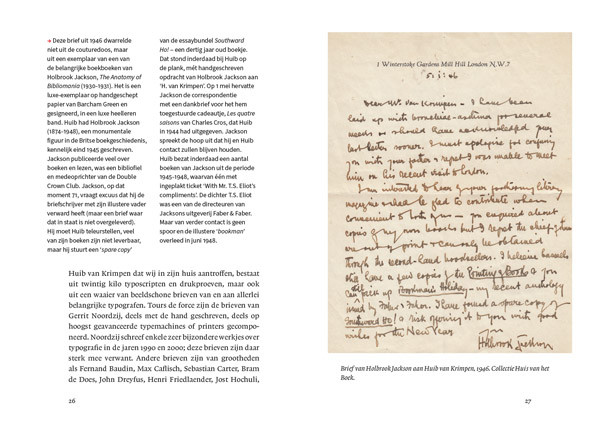 → Deze brief uit 1946 dwarrelde
niet uit de couturedoos, maar
uit een exemplaar van een van
de belangrijke boekboeken van
Holbrook Jackson, The Anatomy of
Bibliomania (1930-1931). Het is een
luxe-exemplaar op handgeschept
papier van Barcham Green en
gesigneerd, in een luxe heelleren
band. Huib had Holbrook Jackson
(1874-1948), een monumentale
figuur in de Britse boekgeschiedenis,
kennelijk eind 1945 geschreven.
Jackson publiceerde veel over
boeken en lezen, was een bibliofiel
en medeoprichter van de Double
Crown Club. Jackson, op dat
moment 71, vraagt excuus dat hij de
briefschrijver met zijn illustere vader
verward heeft (maar een brief waar
dat in staat is niet overgeleverd).
Hij moet Huib teleurstellen, veel
van zijn boeken zijn niet leverbaar,
maar hij stuurt een 'spare copy'
van de essaybundel Southward
Ho! – een dertig jaar oud boekje.
Dat stond inderdaad bij Huib op
de plank, mét handgeschreven
opdracht van Holbrook Jackson aan
'H. van Krimpen'. Op 1 mei hervatte
Jackson de correspondentie
met een dankbrief voor het hem
toegestuurde cadeautje, Les quatre
saisons van Charles Cros, dat Huib
in 1944 had uitgegeven. Jackson
spreekt de hoop uit dat hij en Huib
contact zullen blijven houden.
Huib bezat inderdaad een aantal
boeken van Jackson uit de periode
1945-1948, waarvan één met
ingeplakt ticket 'With Mr. T.S. Eliot's
compliments'. De dichter T.S. Eliot
was een van de directeuren van
Jacksons uitgeverij Faber & Faber.
Maar van verder contact is geen
spoor en de illustere 'bookman'
overleed in juni 1948.
Huib van Krimpen dat wij in zijn huis aantroffen, bestaat
uit twintig kilo typoscripten en drukproeven, maar ook
uit een waaier van beeldschone brieven van en aan allerlei
belangrijke typografen. Tours de force zijn de brieven van
Gerrit Noordzij, deels met de hand geschreven, deels op
hoogst geavanceerde typemachines of printers gecompo-
neerd. Noordzij schreef enkele zeer bijzondere werkjes over
typografie in de jaren 1990 en 2000; deze brieven zijn daar
sterk mee verwant. Andere brieven zijn van grootheden
als Fernand Baudin, Max Caflisch, Sebastian Carter, Bram
de Does, John Dreyfus, Henri Friedlaender, Jost Hochuli,
26
1 Winterstoke Gardens Mill Hill London N.W.7
Dear Mr. Van Krimpen – I have been
laid up with bronchial-asthma for several
weeks or should have acknowledged your
last letter sooner. I must apologise for confusing
you with your father & regret I was unable to meet
him on his recent visit to London.
I am interested to hear of your
be glad to contribute when
convenient to both of us – you enquired about
copies of my own books but I regret the
are out of print & can only be obtained
through the second-hand booksellers. I believe
still have a few copies of the Printing of Books & you
can Bookman's Holiday – my recent anthology
issued by Faber & Faber. I have found a spare copy of
Southward Ho! & am it to you with good
wishes for the New Year
Holbrook Jackson
Brief van Holbrook Jackson aan Huib van Krimpen, 1946. Collectie Huis van het
Boek.
27